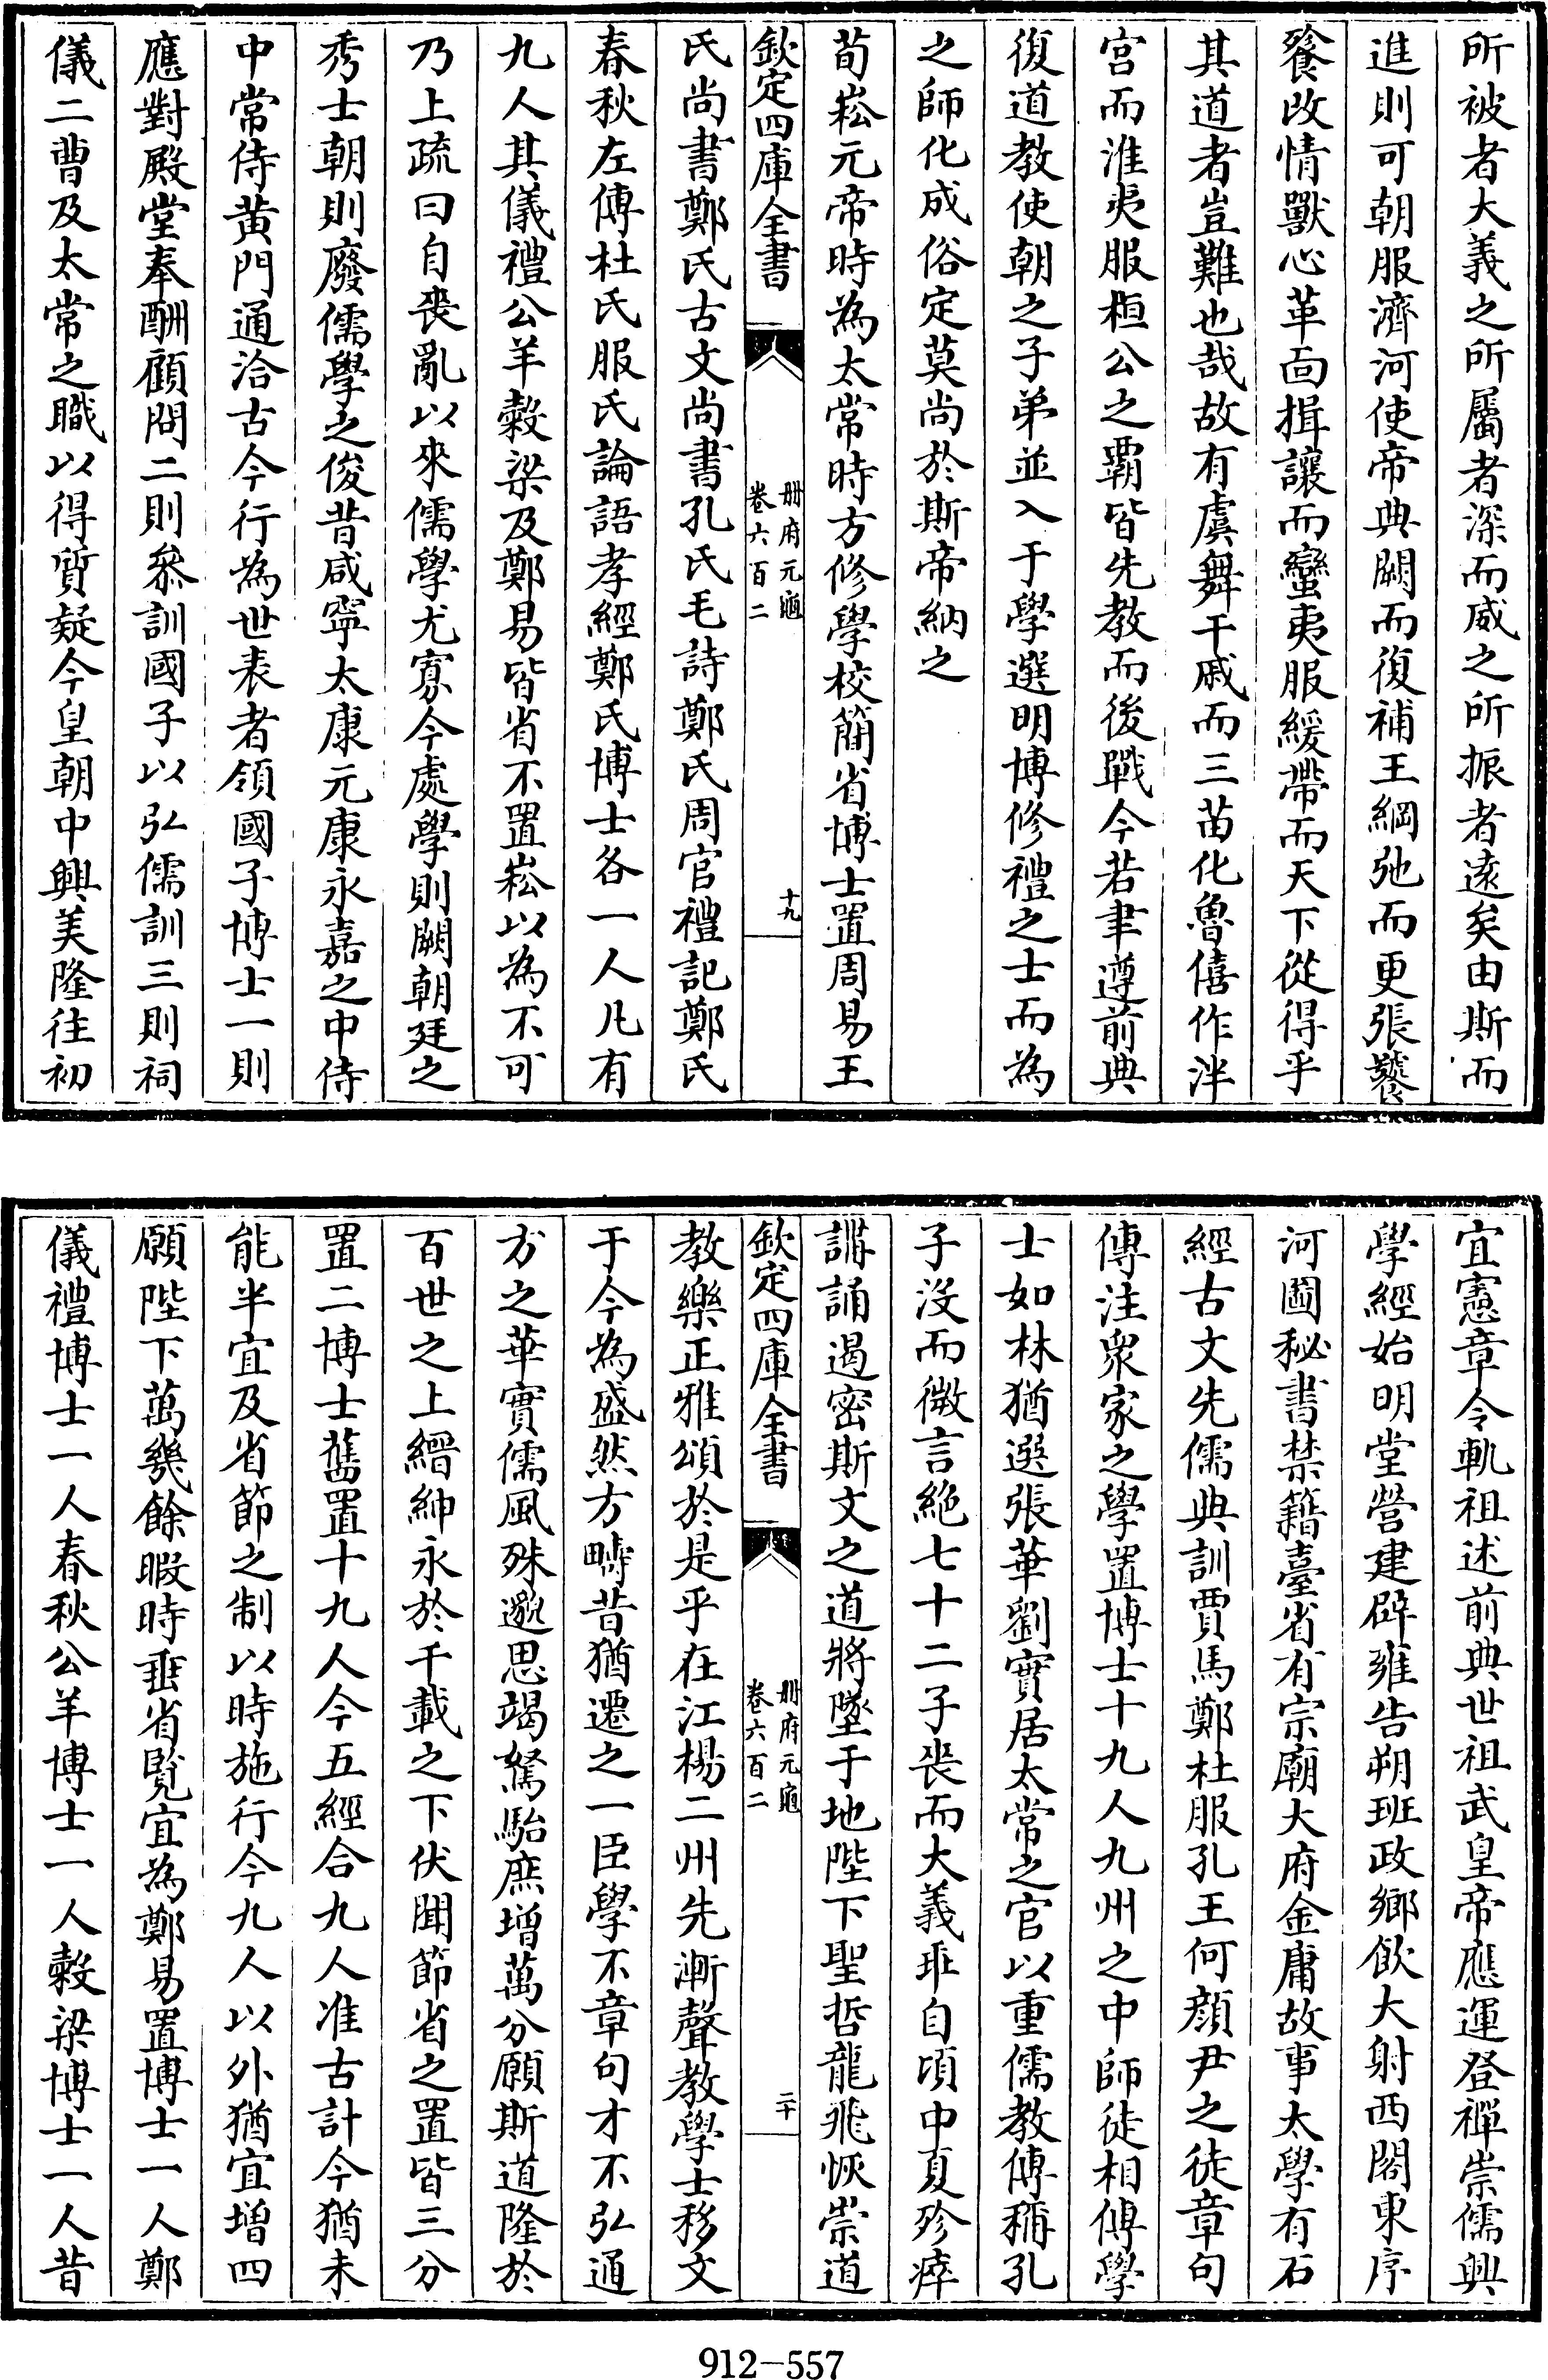 所被者大義之所屬者深而威之所振者遠矣由斯而
進則可朝服濟河使帝典闕而復補王綱弛而更張饕
餮改情獸心革面揖讓而蠻夷服緩帶而天下從得乎
其道者豈難也哉故有虞舞干戚而三苗化魯僖作泮
宫而淮夷服桓公之霸皆先教而後戰今若聿遵前典
復道教使朝之子弟並入于學選明博修禮之士而為
之師化成俗定莫尚於斯帝納之
荀崧元帝時為太常時方修學校簡省博士置周易王
欽定四庫全書
冊府元龜
卷六百二
十九
氏尚書鄭氏古文尚書孔氏毛詩鄭氏周官禮記鄭氏
春秋左傳杜氏服氏論語孝經鄭氏博士各一人凡有
九人其儀禮公羊穀梁及鄭易皆省不置崧以為不可
乃上疏曰自喪亂以來儒學尤寡今處學則闕朝廷之
秀士朝則廢儒學之俊昔咸寧太康元康永嘉之中侍
中常侍黄門通洽古今行為世表者領國子博士一則
應對殿堂奉酬顧問二則叅訓國子以弘儒訓三則祠
儀二曹及太常之職以得質疑今皇朝中興美隆往初
宜憲章令軌祖述前典世祖武皇帝應運登禪崇儒興
學經始明堂營建辟雍告朔班政鄉飲大射西閤東序
河圖秘書禁籍臺省有宗廟大府金庸故事太學有石
經古文先儒典訓賈馬鄭杜服孔王何顔尹之徒章句
傳注衆家之學置博士十九人九州之中師徒相傳學
士如林猶選張華劉實居太常之官以重儒教傳稱孔
子没而微言絶七十二子喪而大義乖自頃中夏殄瘁
講誦遏密斯文之道將墜于地陛下聖哲龍飛恢崇道
欽定四庫全書
冊府元龜
卷六百二
二十
教樂正雅頌於是乎在江楊二州先漸聲教學士移文
于今為盛然方疇昔猶遷之一臣學不章句才不弘通
方之華實儒風殊邈思竭駑駘庶增萬分願斯道隆於
百世之上縉紳永於千載之下伏聞節省之置皆三分
置二博士舊置十九人今五經合九人准古計今猶未
能半宜及省節之制以時施行今九人以外猶宜增四
願陛下萬幾餘暇時垂省覧宜為鄭易置博士一人鄭
儀禮博士一人春秋公羊博士一人穀梁博士一人昔
912-557